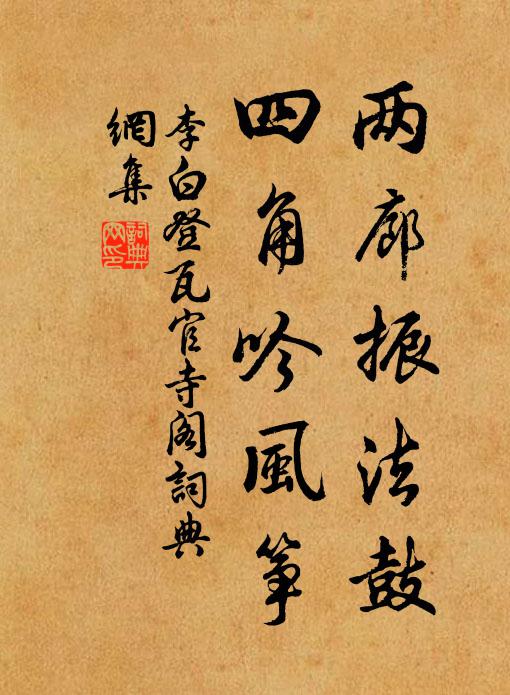 两廊振法鼓
四角吟风筝
李白登瓦官寺阁詞典
網集
詞典网印